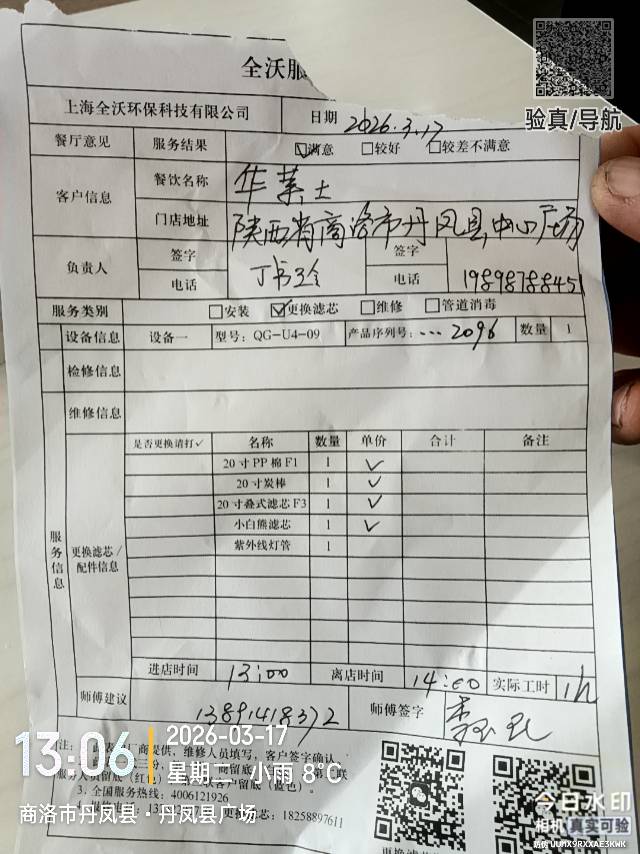 全沃服
验真/导航
上海全沃环保科技有限公司 日期 2026.3.17
餐厅意见 服务结果 ☑满意 □较好 □较差不满意
客户信息 餐饮名称 华莱士
门店地址 陕西省商洛市丹凤县中心广场
负责人 签字 签字
电话 电话 19898788451
服务类别 □安装 ☑更换滤芯 □维修 □管道消毒
设备信息 设备一 型号: QG-U4-09 产品序列号: ...2096 数量 1
检修信息
维修信息
服务信息
更换滤芯/配件信息
是否更换请打✓ 名称 数量 单价 合计 备注
20寸PP棉F1 1 ✓
20寸炭棒 1 ✓
20寸叠式滤芯F3 1 ✓
小白熊滤芯 1 ✓
紫外线灯管 1
进店时间 13:00 离店时间 14:00 实际工时 1h
师傅建议 13891418372 师傅签字
13:06
2026-03-17
星期二 小雨 8°C
商洛市丹凤县·丹凤县广场
厂商提供，维修人员填写，客户签字确认
3. 全国服务热线: 4006121926
18258897611
今日水印
相机 真实可验
防伪 UUMX9RXXAE3KWK